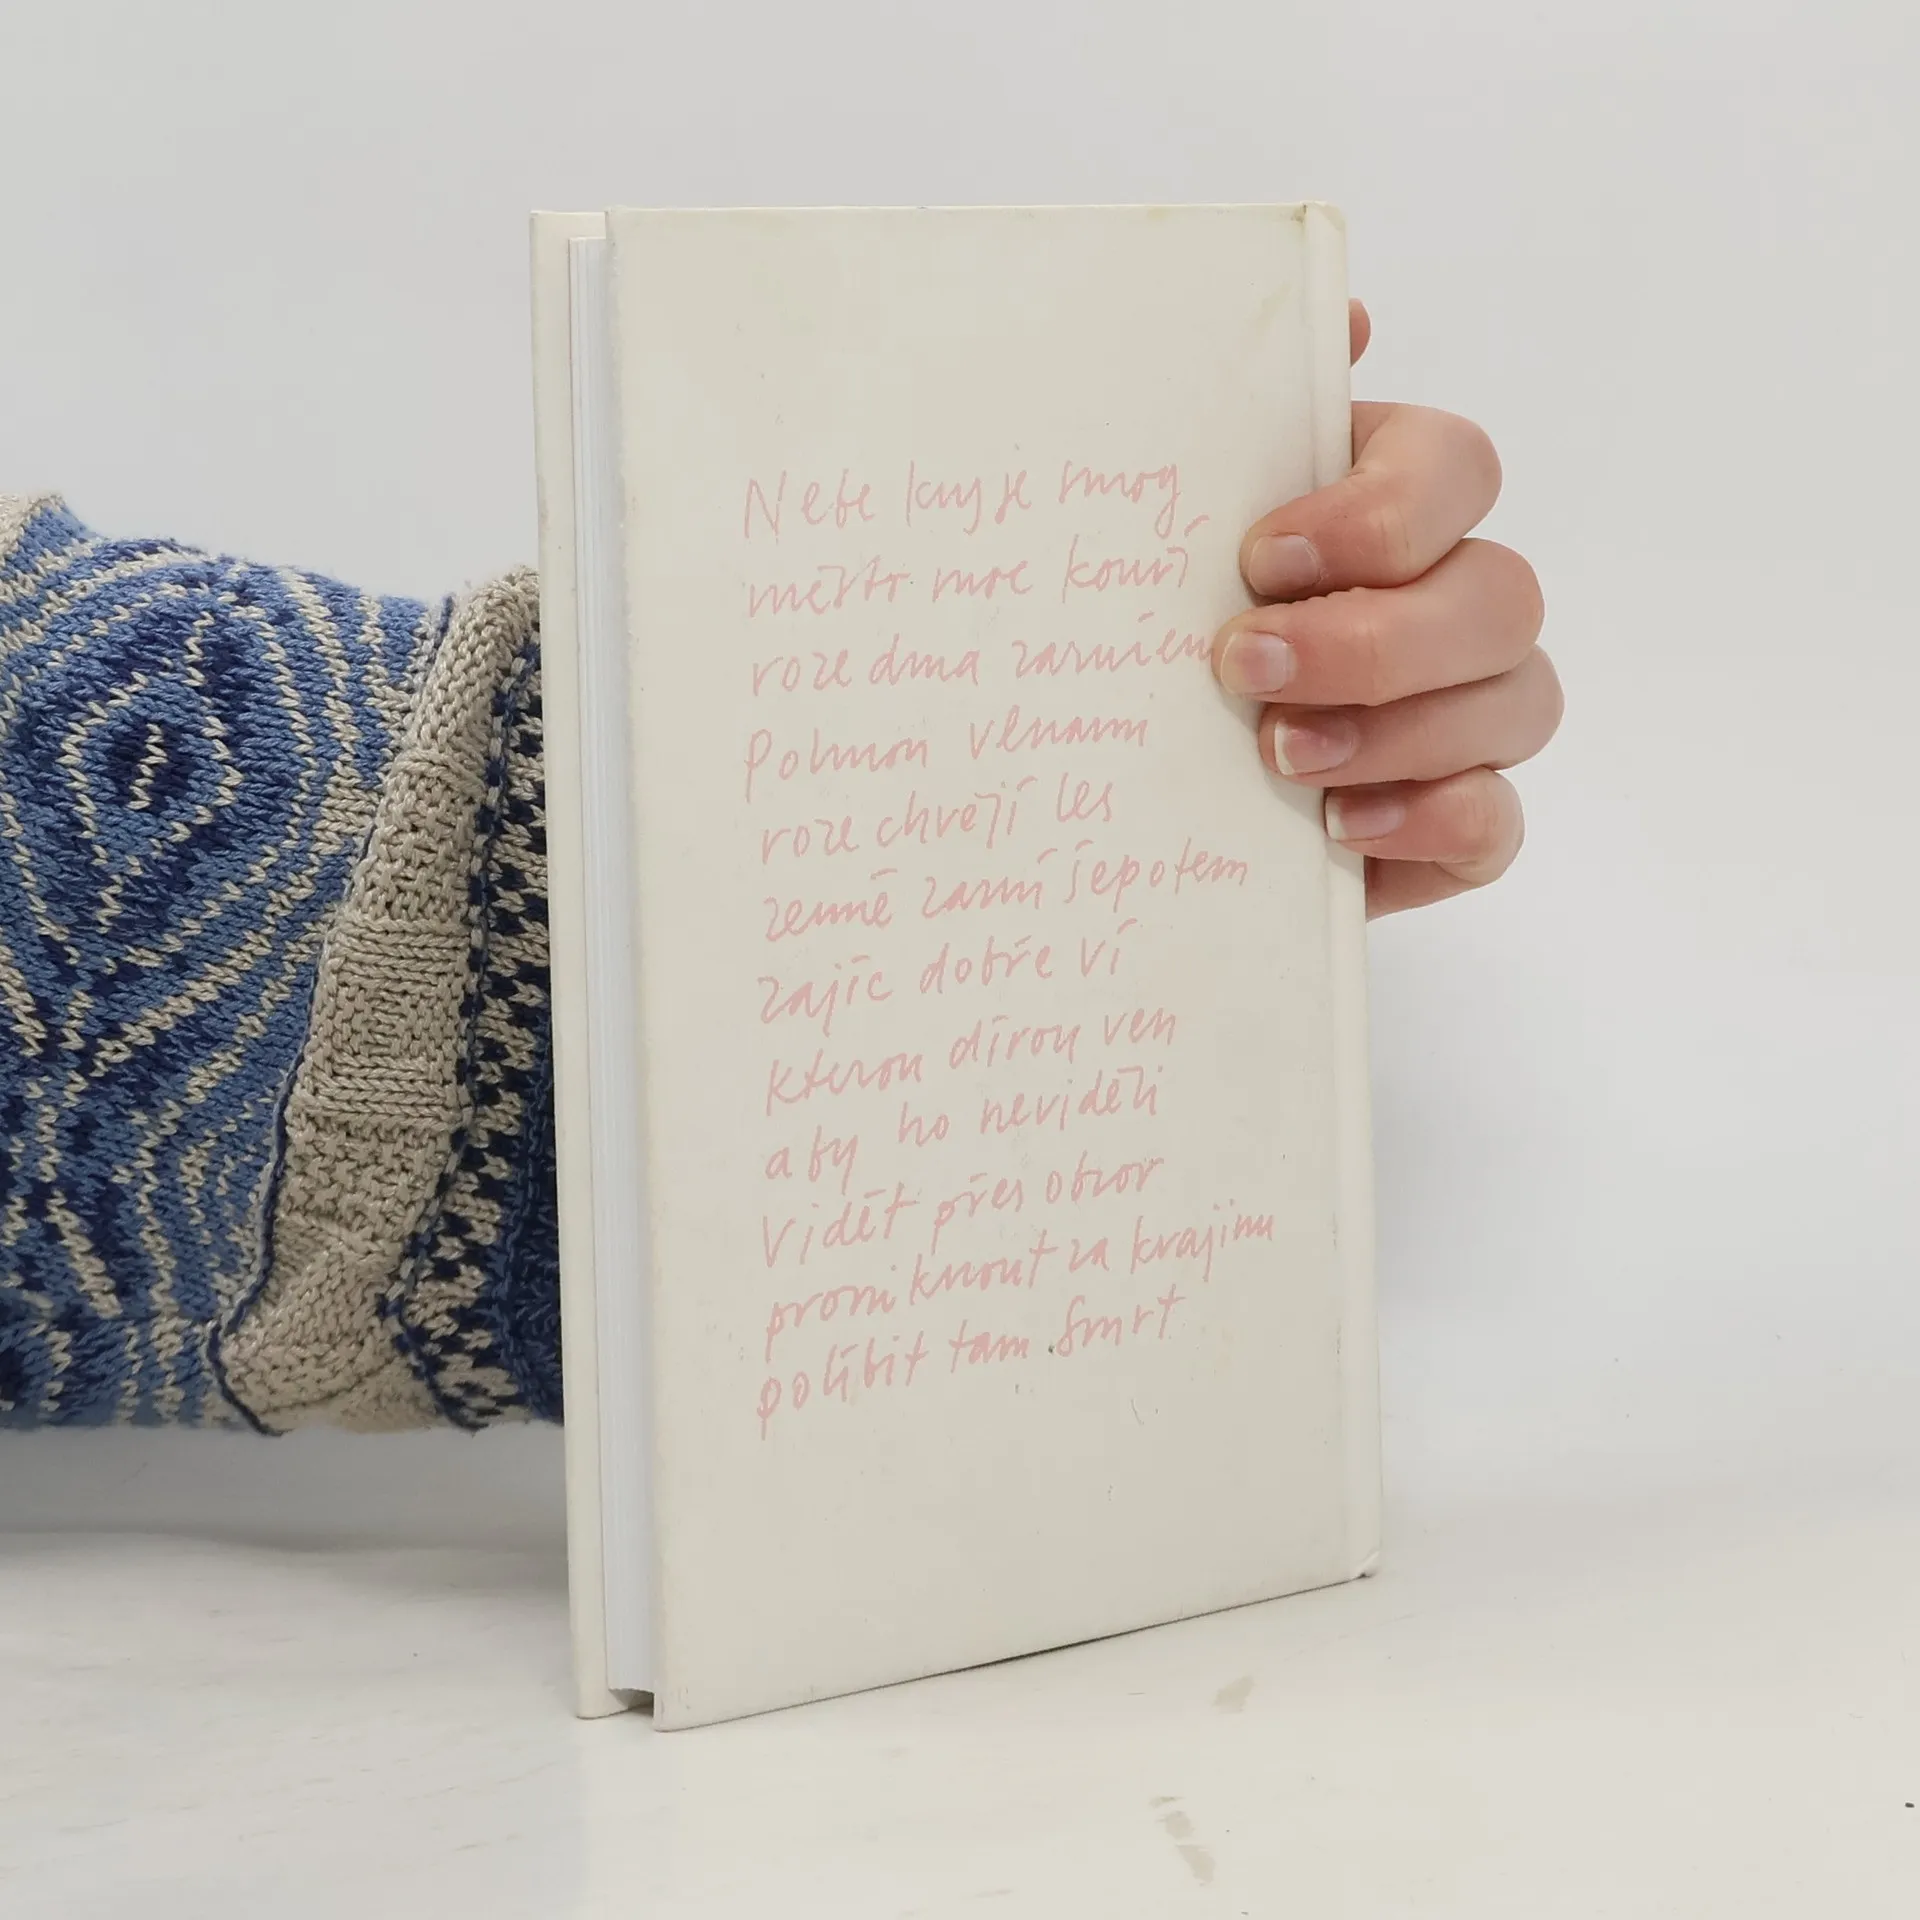 Nebe kryje smog
město mé kouří
rozedma zaručen
Polmou vlnami
rozechvějí les
země zazní šepotem
zajíc dobře ví
kterou dírou ven
aby ho neviděli
Vidět přes obzor
proniknout za krajinu
políbit tam Smrt